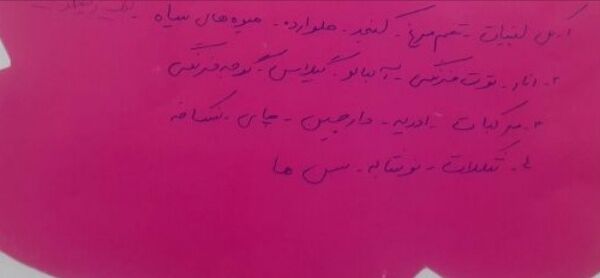 ۱. کل لبنیات - تخم مرغ - کنجد - حلوارده - میوه های سیاه
۲. انار - توت فرنگی - آلبالو - گیلاس - گوجه فرنگی
۳. مرکبات - ادویه - دارچین - چای - نسکافه
۴. تنقلات - نوشابه - سس ها